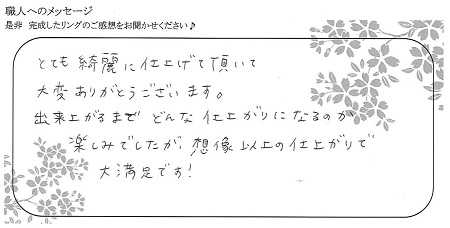 職人へのメッセージ
是非 完成したリングのご感想をお聞かせください♪
とても綺麗に仕上げて頂いて
大変ありがとうございます。
出来上がるまでどんな仕上がりになるのか
楽しみでしたが、想像以上の仕上がりで
大満足です!